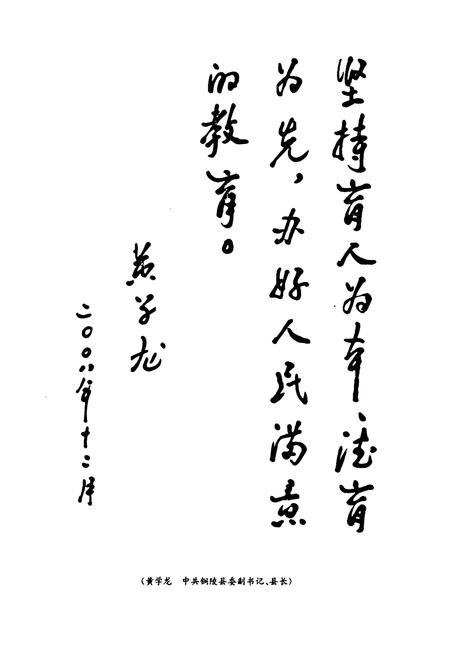 坚持育人为本、德育
为先，办好人民满意
的教育。
黄学龙
二〇〇八年十二月
（黄学龙　中共铜陵县委副书记、县长）